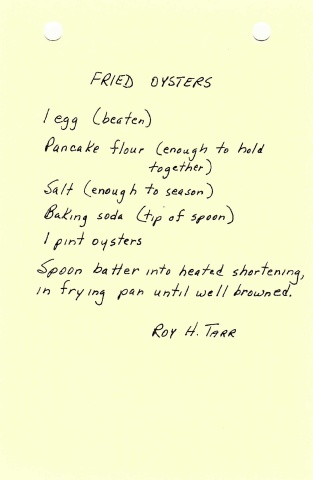 FRIED OYSTERS
1 egg (beaten)
Pancake flour (enough to hold
together)
Salt (enough to season)
Baking soda (tip of spoon)
1 pint oysters
Spoon batter into heated shortening,
in frying pan until well browned.
ROY H. TARR